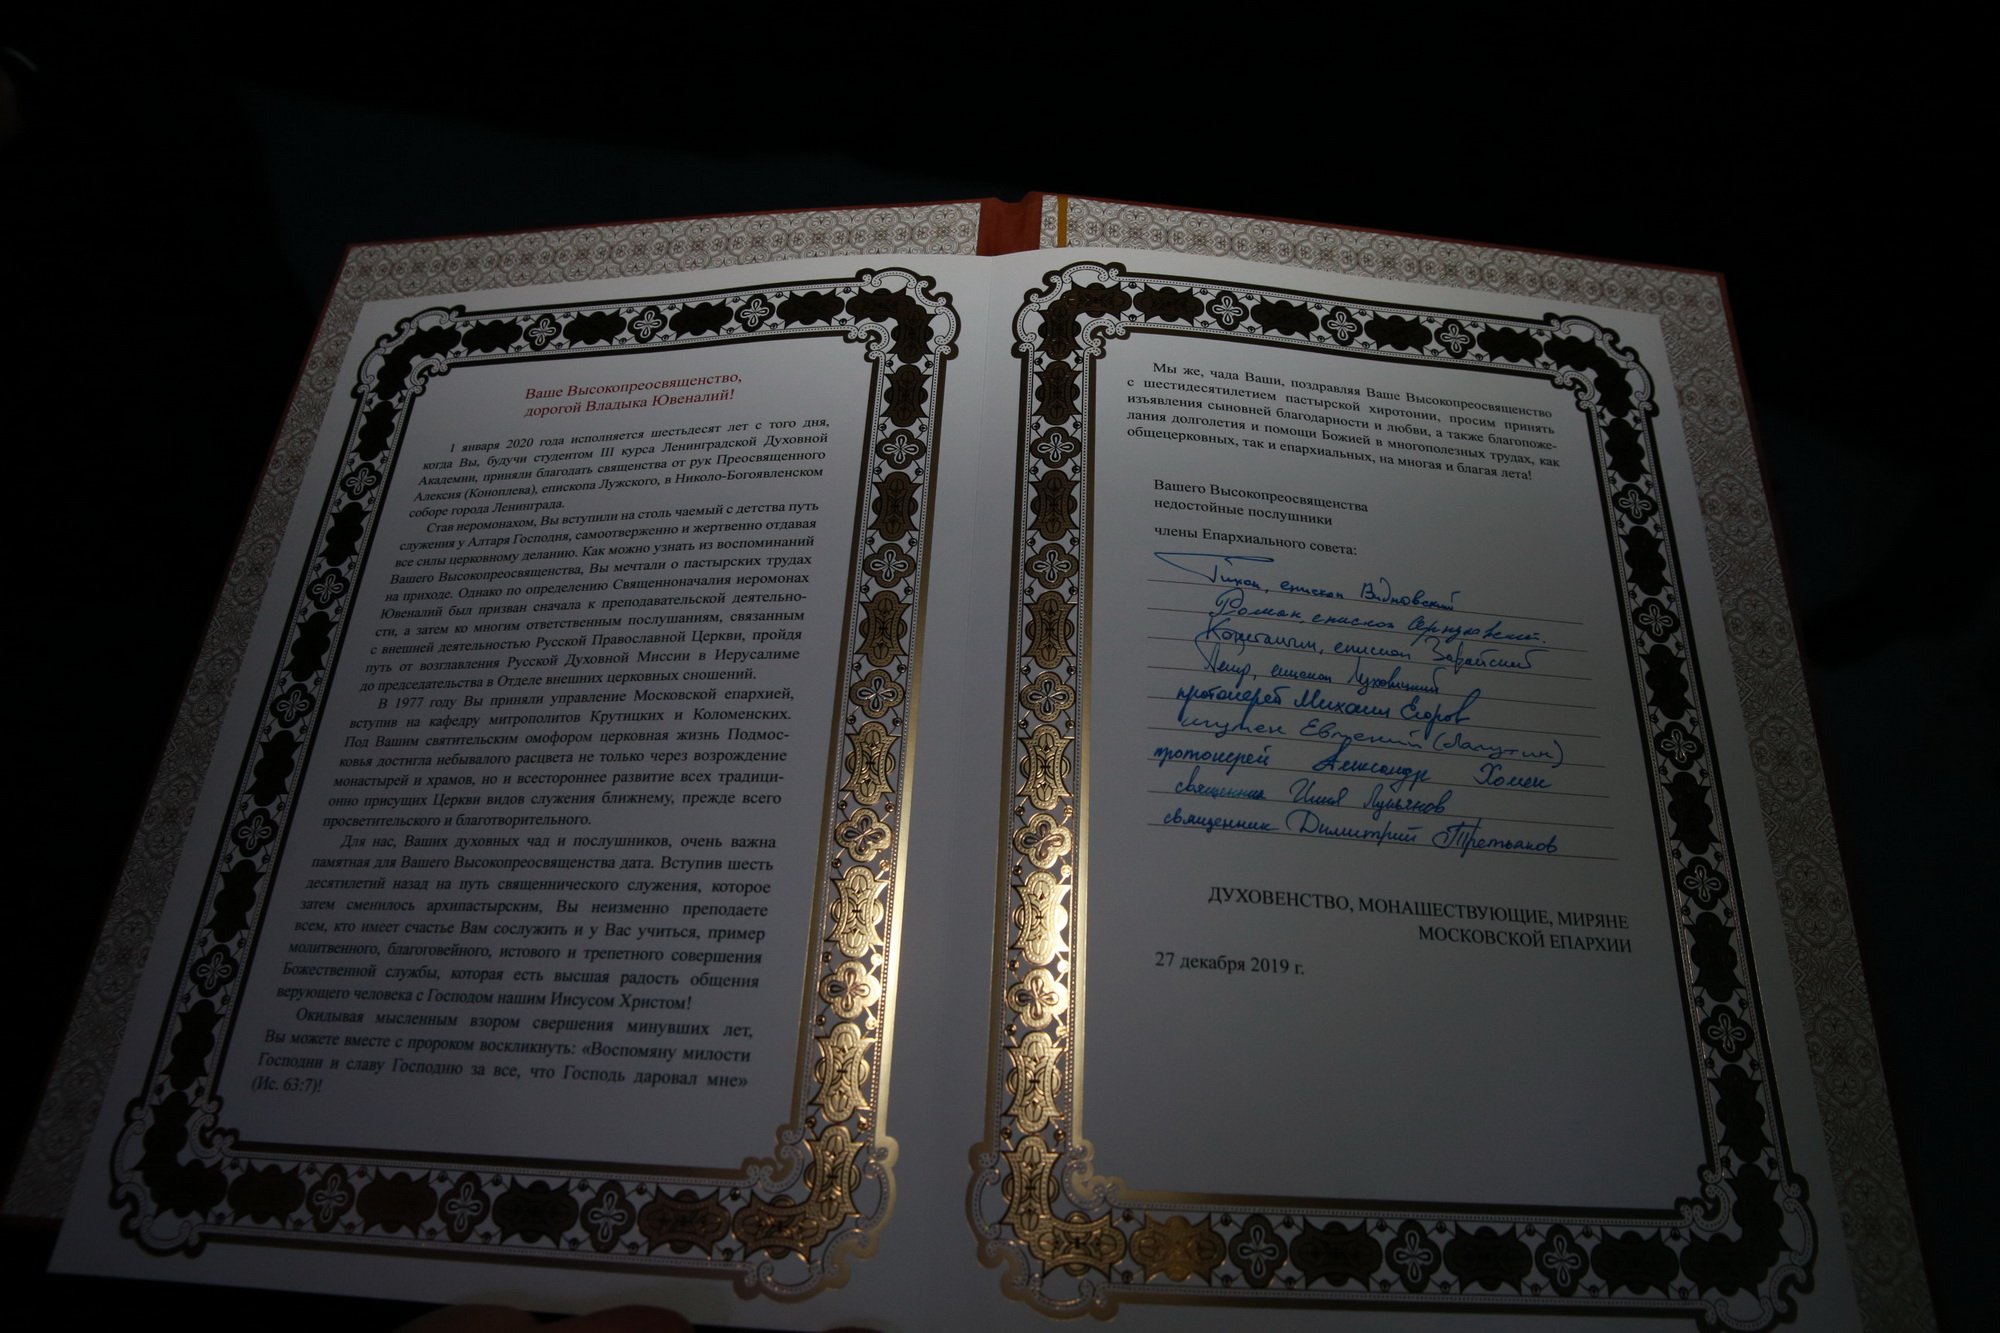 Ваше Высокопреосвященство,
дорогой Владыка Ювеналий!
1 января 2020 года исполняется шестьдесят лет с того дня,
когда Вы, будучи студентом III курса Ленинградской Духовной
Академии, приняли благодать священства от рук Преосвященного
Алексия (Коноплева), епископа Лужского, в Николо-Богоявленском
соборе города Ленинграда.
Став иеромонахом, Вы вступили на столь чаемый с детства путь
служения у Алтаря Господня, самоотверженно и жертвенно отдавая
все силы церковному деланию. Как можно узнать из воспоминаний
Вашего Высокопреосвященства, Вы мечтали о пастырских трудах
на приходе. Однако по определению Священноначалия иеромонах
Ювеналий был призван сначала к преподавательской деятельно-
сти, а затем ко многим ответственным послушаниям, связанным
с внешней деятельностью Русской Православной Церкви, пройдя
путь от возглавления Русской Духовной Миссии в Иерусалиме
до председательства в Отделе внешних церковных сношений.
В 1977 году Вы приняли управление Московской епархией,
вступив на кафедру митрополитов Крутицких и Коломенских.
Под Вашим святительским омофором церковная жизнь Подмос-
ковья достигла небывалого расцвета не только через возрождение
монастырей и храмов, но и всестороннее развитие всех традици-
онно присущих Церкви видов служения ближнему, прежде всего
просветительного и благотворительного.
Для нас, Ваших духовных чад и послушников, очень важна
памятная для Вашего Высокопреосвященства дата. Вступив шесть
десятилетий назад на путь священнического служения, которое
затем сменилось архипастырским, Вы неизменно преподаете
всем, кто имеет счастье Вам сослужить и у Вас учиться, пример
молитвенного, благоговейного, истового и трепетного совершения
Божественной службы, которая есть высшая радость общения
верующего человека с Господом нашим Иисусом Христом!
Окидывая мысленным взором свершения минувших лет,
Вы можете вместе с пророком воскликнуть: «Воспомяну милости
Господни и славу Господню за все, что Господь даровал мне»
(Ис. 63:7)!
Мы же, чада Ваши, поздравляя Ваше Высокопреосвященство
с шестидесятилетием пастырской хиротонии, просим принять
изъявления сыновней благодарности и любви, а также благопоже-
лания долголетия и помощи Божией в многополезных трудах, как
общецерковных, так и епархиальных, на многая и благая лета!
Вашего Высокопреосвященства
недостойные послушники
члены Епархиального совета:
Тихон, епископ Видновский
Роман епископ Серпуховский.
Константин, епископ Зарайский
Петр, епископ Луховицкий
протоиерей Михаил Егоров
игумен Евгений (Лапутин)
протоиерей Александр Хомяк
священник Илия Лукьянов
священник Димитрий Третьяков
ДУХОВЕНСТВО, МОНАШЕСТВУЮЩИЕ, МИРЯНЕ
МОСКОВСКОЙ ЕПАРХИИ
27 декабря 2019 г.